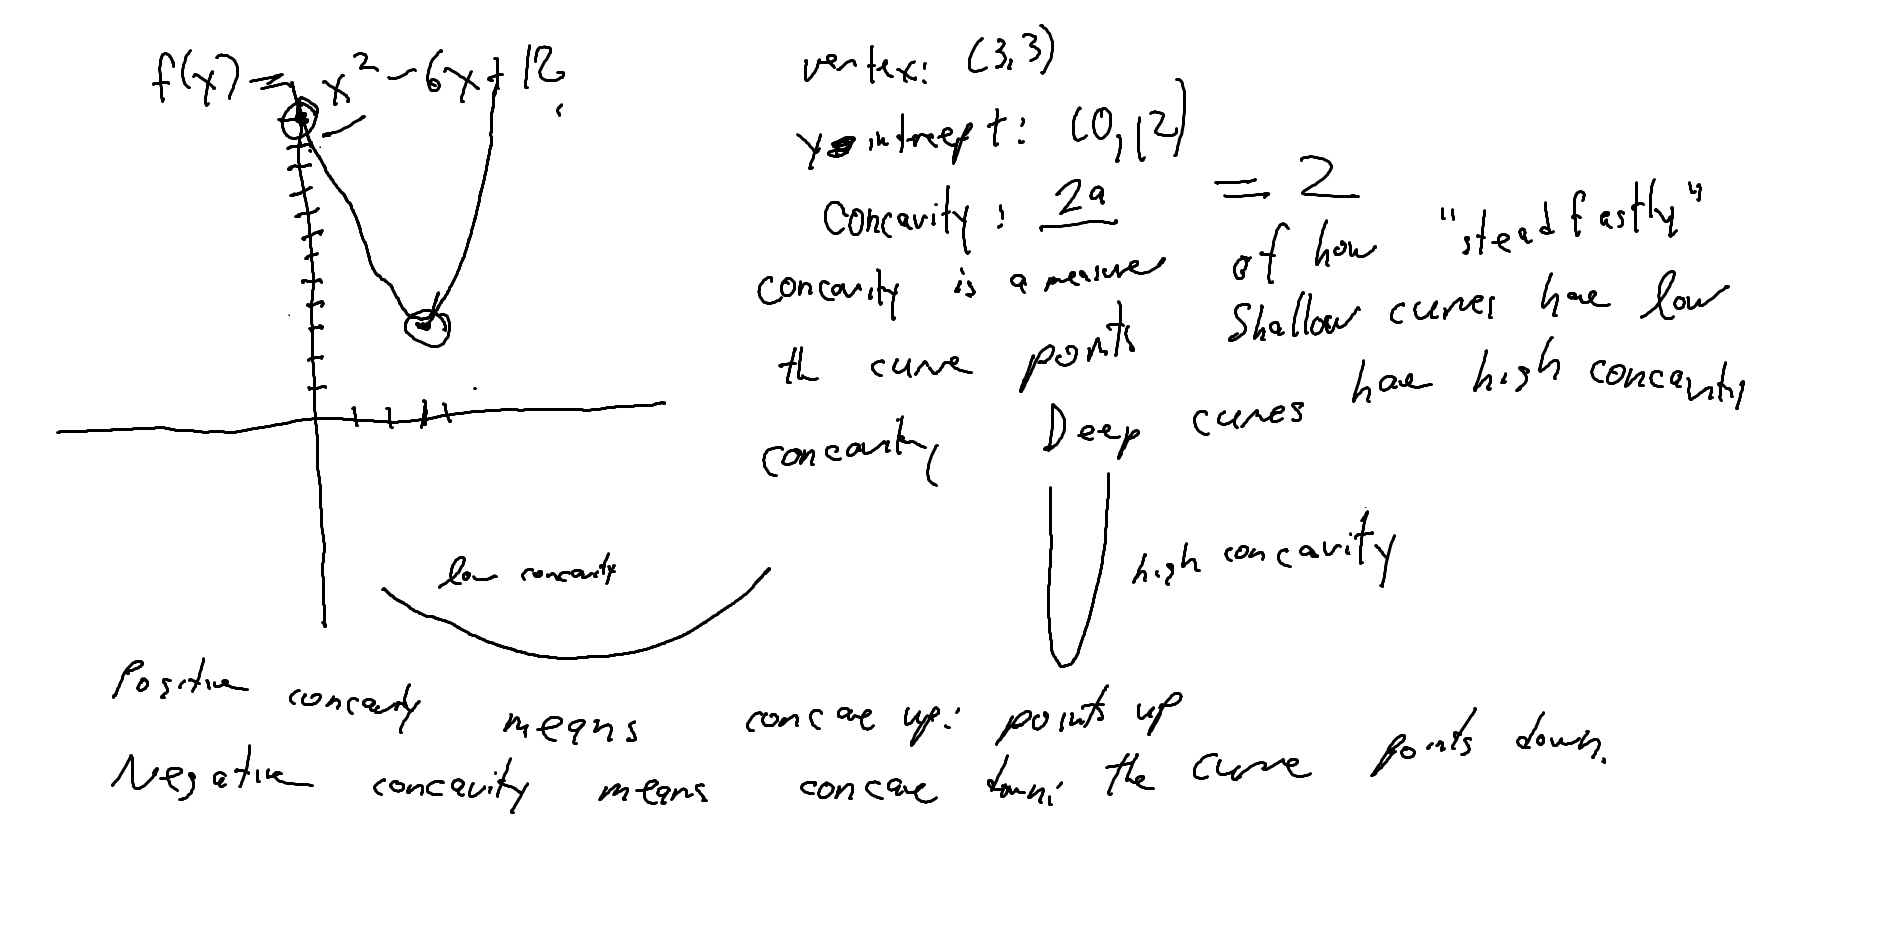 f(x) = x² - 6x + 12
vertex: (3,3)
y intrcept: (0,12)
Concavity: 2a = 2
concavity is a measure of how "steadfastly"
the curve points Shallow curves have low
concavity Deep curves have high concavity
low concavity
high concavity
Positive concavity means concave up: points up
Negative concavity means concave down: the curve points down.